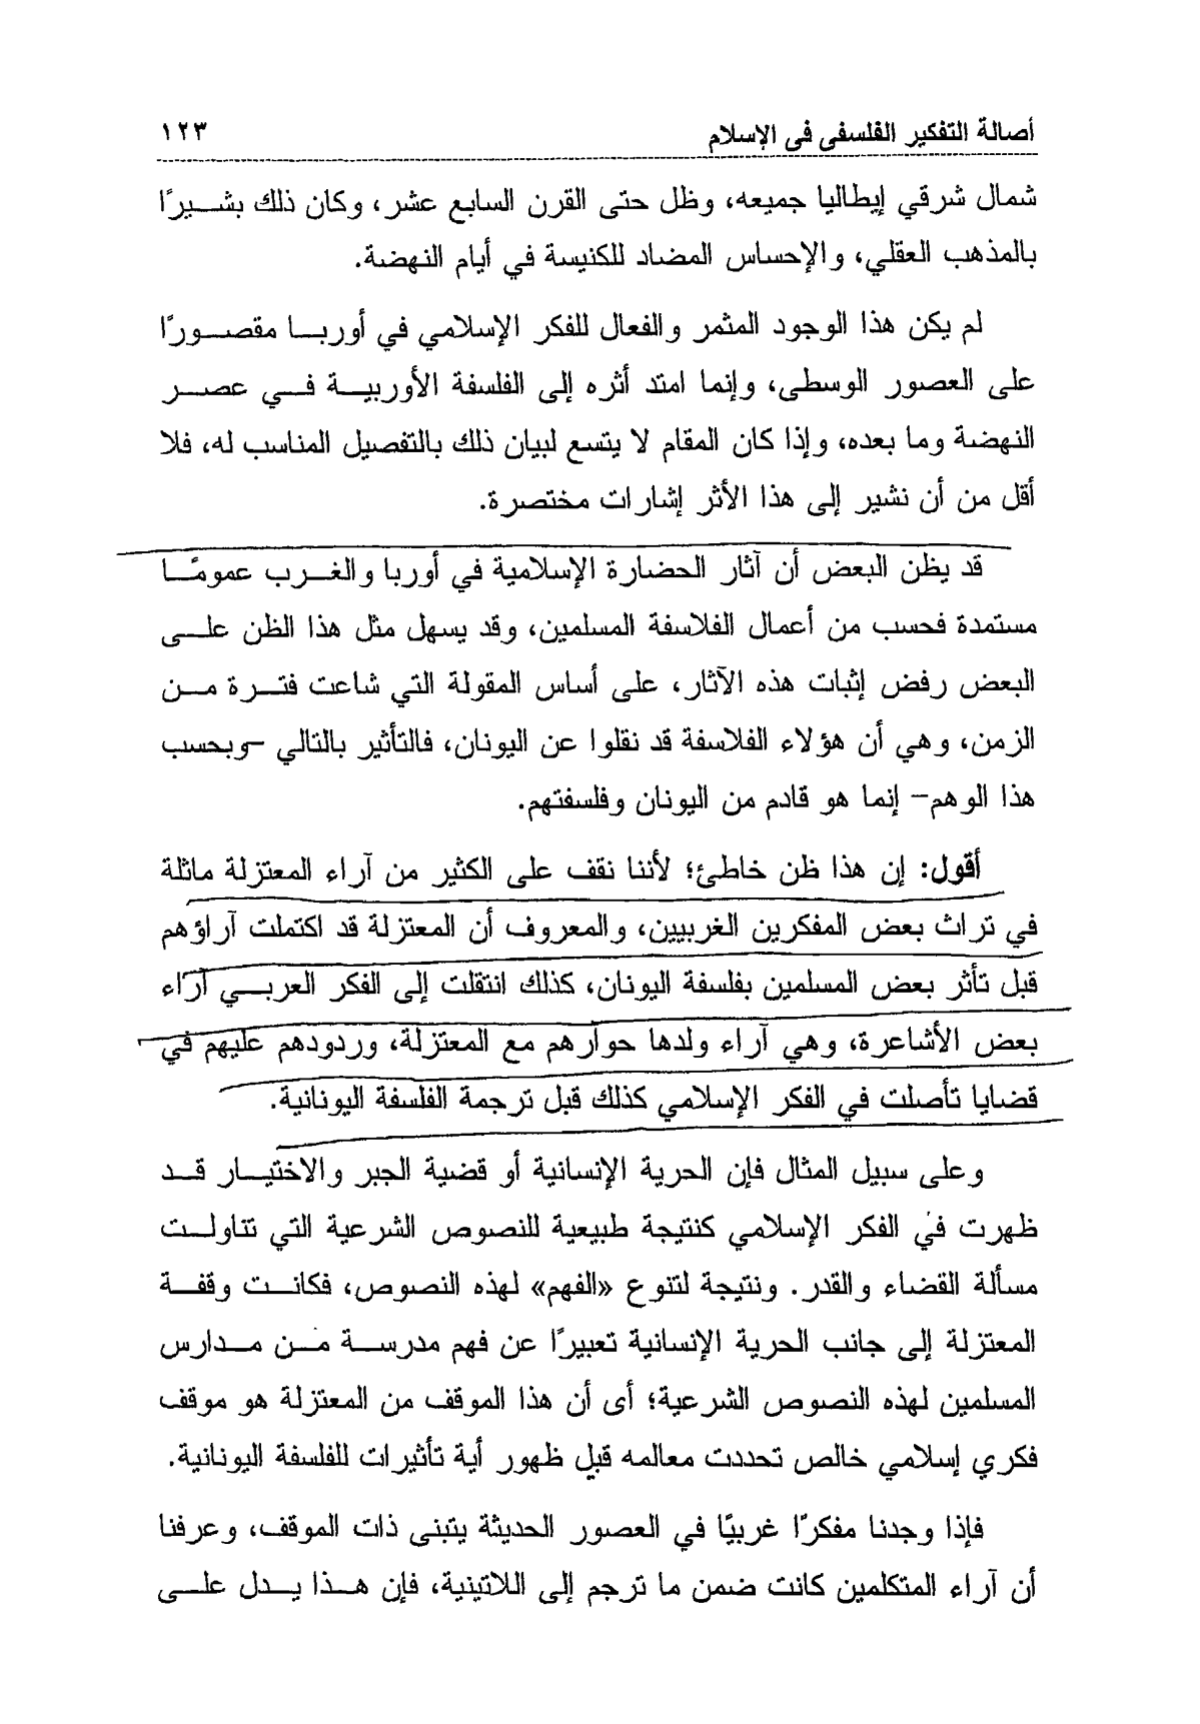 أصالة التفكير الفلسفى فى الإسلام ١٢٣
شمال شرقي إيطاليا جميعه، وظل حتى القرن السابع عشر، وكان ذلك بشيرًا
بالمذهب العقلي، والإحساس المضاد للكنيسة في أيام النهضة.
لم يكن هذا الوجود المثمر والفعال للفكر الإسلامي في أوربا مقصورًا
على العصور الوسطى، وإنما امتد أثره إلى الفلسفة الأوربية في عصر
النهضة وما بعده، وإذا كان المقام لا يتسع لبيان ذلك بالتفصيل المناسب له، فلا
أقل من أن نشير إلى هذا الأثر إشارات مختصرة.
قد يظن البعض أن آثار الحضارة الإسلامية في أوربا والغرب عمومًا
مستمدة فحسب من أعمال الفلاسفة المسلمين، وقد يسهل مثل هذا الظن على
البعض رفض إثبات هذه الآثار، على أساس المقولة التي شاعت فترة من
الزمن، وهي أن هؤلاء الفلاسفة قد نقلوا عن اليونان، فالتأثير بالتالي -وبحسب
هذا الوهم- إنما هو قادم من اليونان وفلسفتهم.
أقول: إن هذا ظن خاطئ؛ لأننا نقف على الكثير من آراء المعتزلة ماثلة
في تراث بعض المفكرين الغربيين، والمعروف أن المعتزلة قد اكتملت آراؤهم
قبل تأثر بعض المسلمين بفلسفة اليونان، كذلك انتقلت إلى الفكر العربي آراء
بعض الأشاعرة، وهي آراء ولدها حوارهم مع المعتزلة، وردودهم عليهم في
قضايا تأصلت في الفكر الإسلامي كذلك قبل ترجمة الفلسفة اليونانية.
وعلى سبيل المثال فإن الحرية الإنسانية أو قضية الجبر والاختيار قد
ظهرت في الفكر الإسلامي كنتيجة طبيعية للنصوص الشرعية التي تناولت
مسألة القضاء والقدر. ونتيجة لتنوع «الفهم» لهذه النصوص، فكانت وقفة
المعتزلة إلى جانب الحرية الإنسانية تعبيرًا عن فهم مدرسة من مدارس
المسلمين لهذه النصوص الشرعية؛ أى أن هذا الموقف من المعتزلة هو موقف
فكري إسلامي خالص تحددت معالمه قبل ظهور أية تأثيرات للفلسفة اليونانية.
فإذا وجدنا مفكرًا غربيًا في العصور الحديثة يتبنى ذات الموقف، وعرفنا
أن آراء المتكلمين كانت ضمن ما ترجم إلى اللاتينية، فإن هذا يدل على